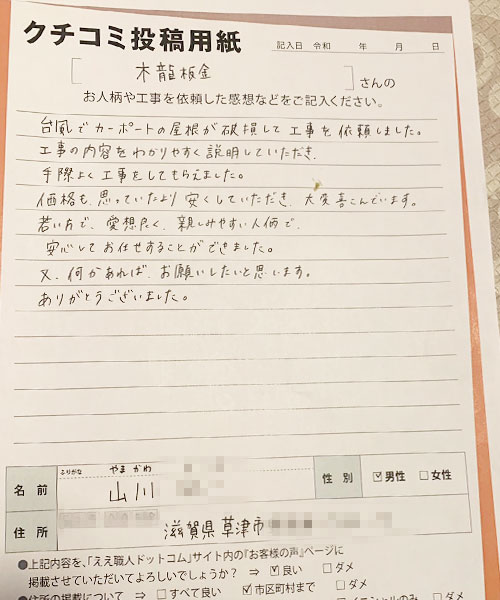 クチコミ投稿用紙
記入日 令和 年 月 日
[ 木龍板金 ] さんの
お人柄や工事を依頼した感想などをご記入ください。
台風でカーポートの屋根が破損して工事を依頼しました。
工事の内容をわかりやすく説明していただき、
手際よく工事をしてもらえました。
価格も、思っていたより安くしていただき、大変喜こんでいます。
若い方で、愛想良く、親しみやすい人価で、
安心してお任せすることができました。
又、何かあれば、お願いしたいと思います。
ありがとうございました。
ふりがな やまかわ
名前 山川 性別 ☑男性 □女性
住所 滋賀県草津市
●上記内容を、「ええ職人ドットコム」サイト内の『お客様の声』ページに
掲載させていただいてよろしいでしょうか? ⇒ ☑良い □ダメ
●住所の掲載について ⇒ □すべて良い ☑市区町村まで □ダメ